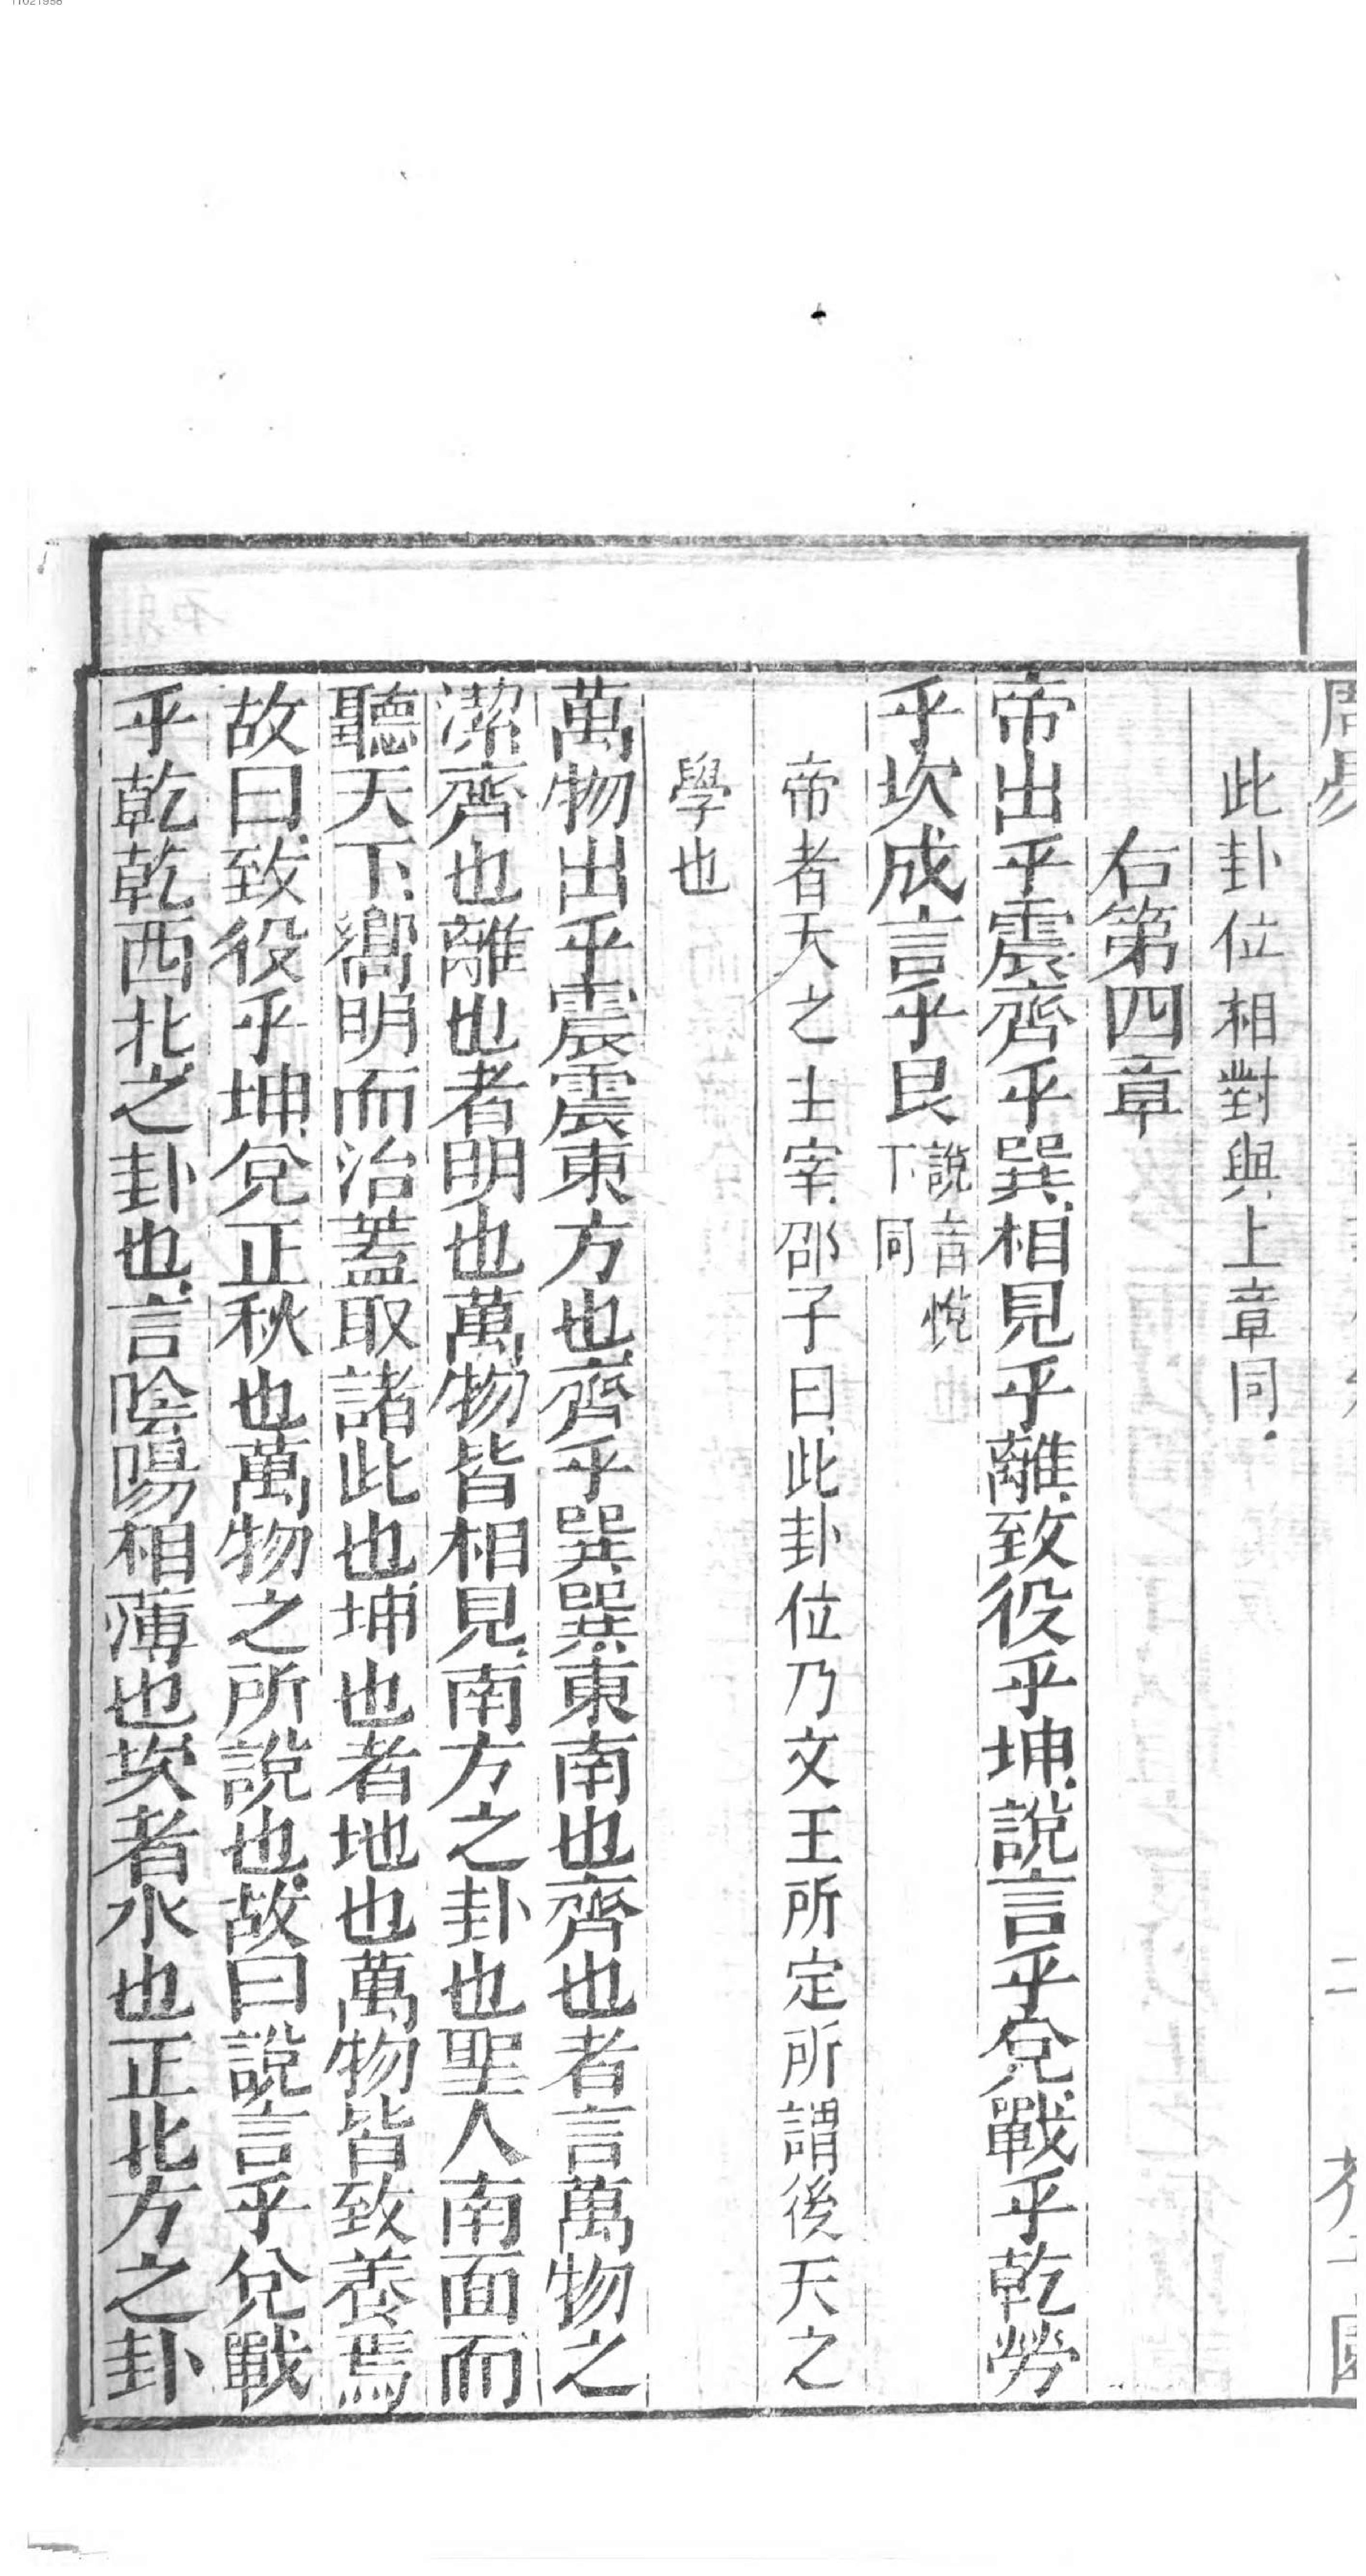 11021958
周易
此卦位相對與上章同
右第四章
帝出乎震齊乎巽相見乎離致役乎坤說言乎兌戰乎乾勞
乎坎成言乎艮說音悅下同
帝者天之主宰邵子曰此卦位乃文王所定所謂後天之
學也
萬物出乎震震東方也齊乎巽巽東南也齊也者言萬物之
潔齊也離也者明也萬物皆相見南方之卦也聖人南面而
聽天下嚮明而治蓋取諸此也坤也者地也萬物皆致養焉
故曰致役乎坤兌正秋也萬物之所說也故曰說言乎兌戰
乎乾乾西北之卦也言陰陽相薄也坎者水也正北方之卦